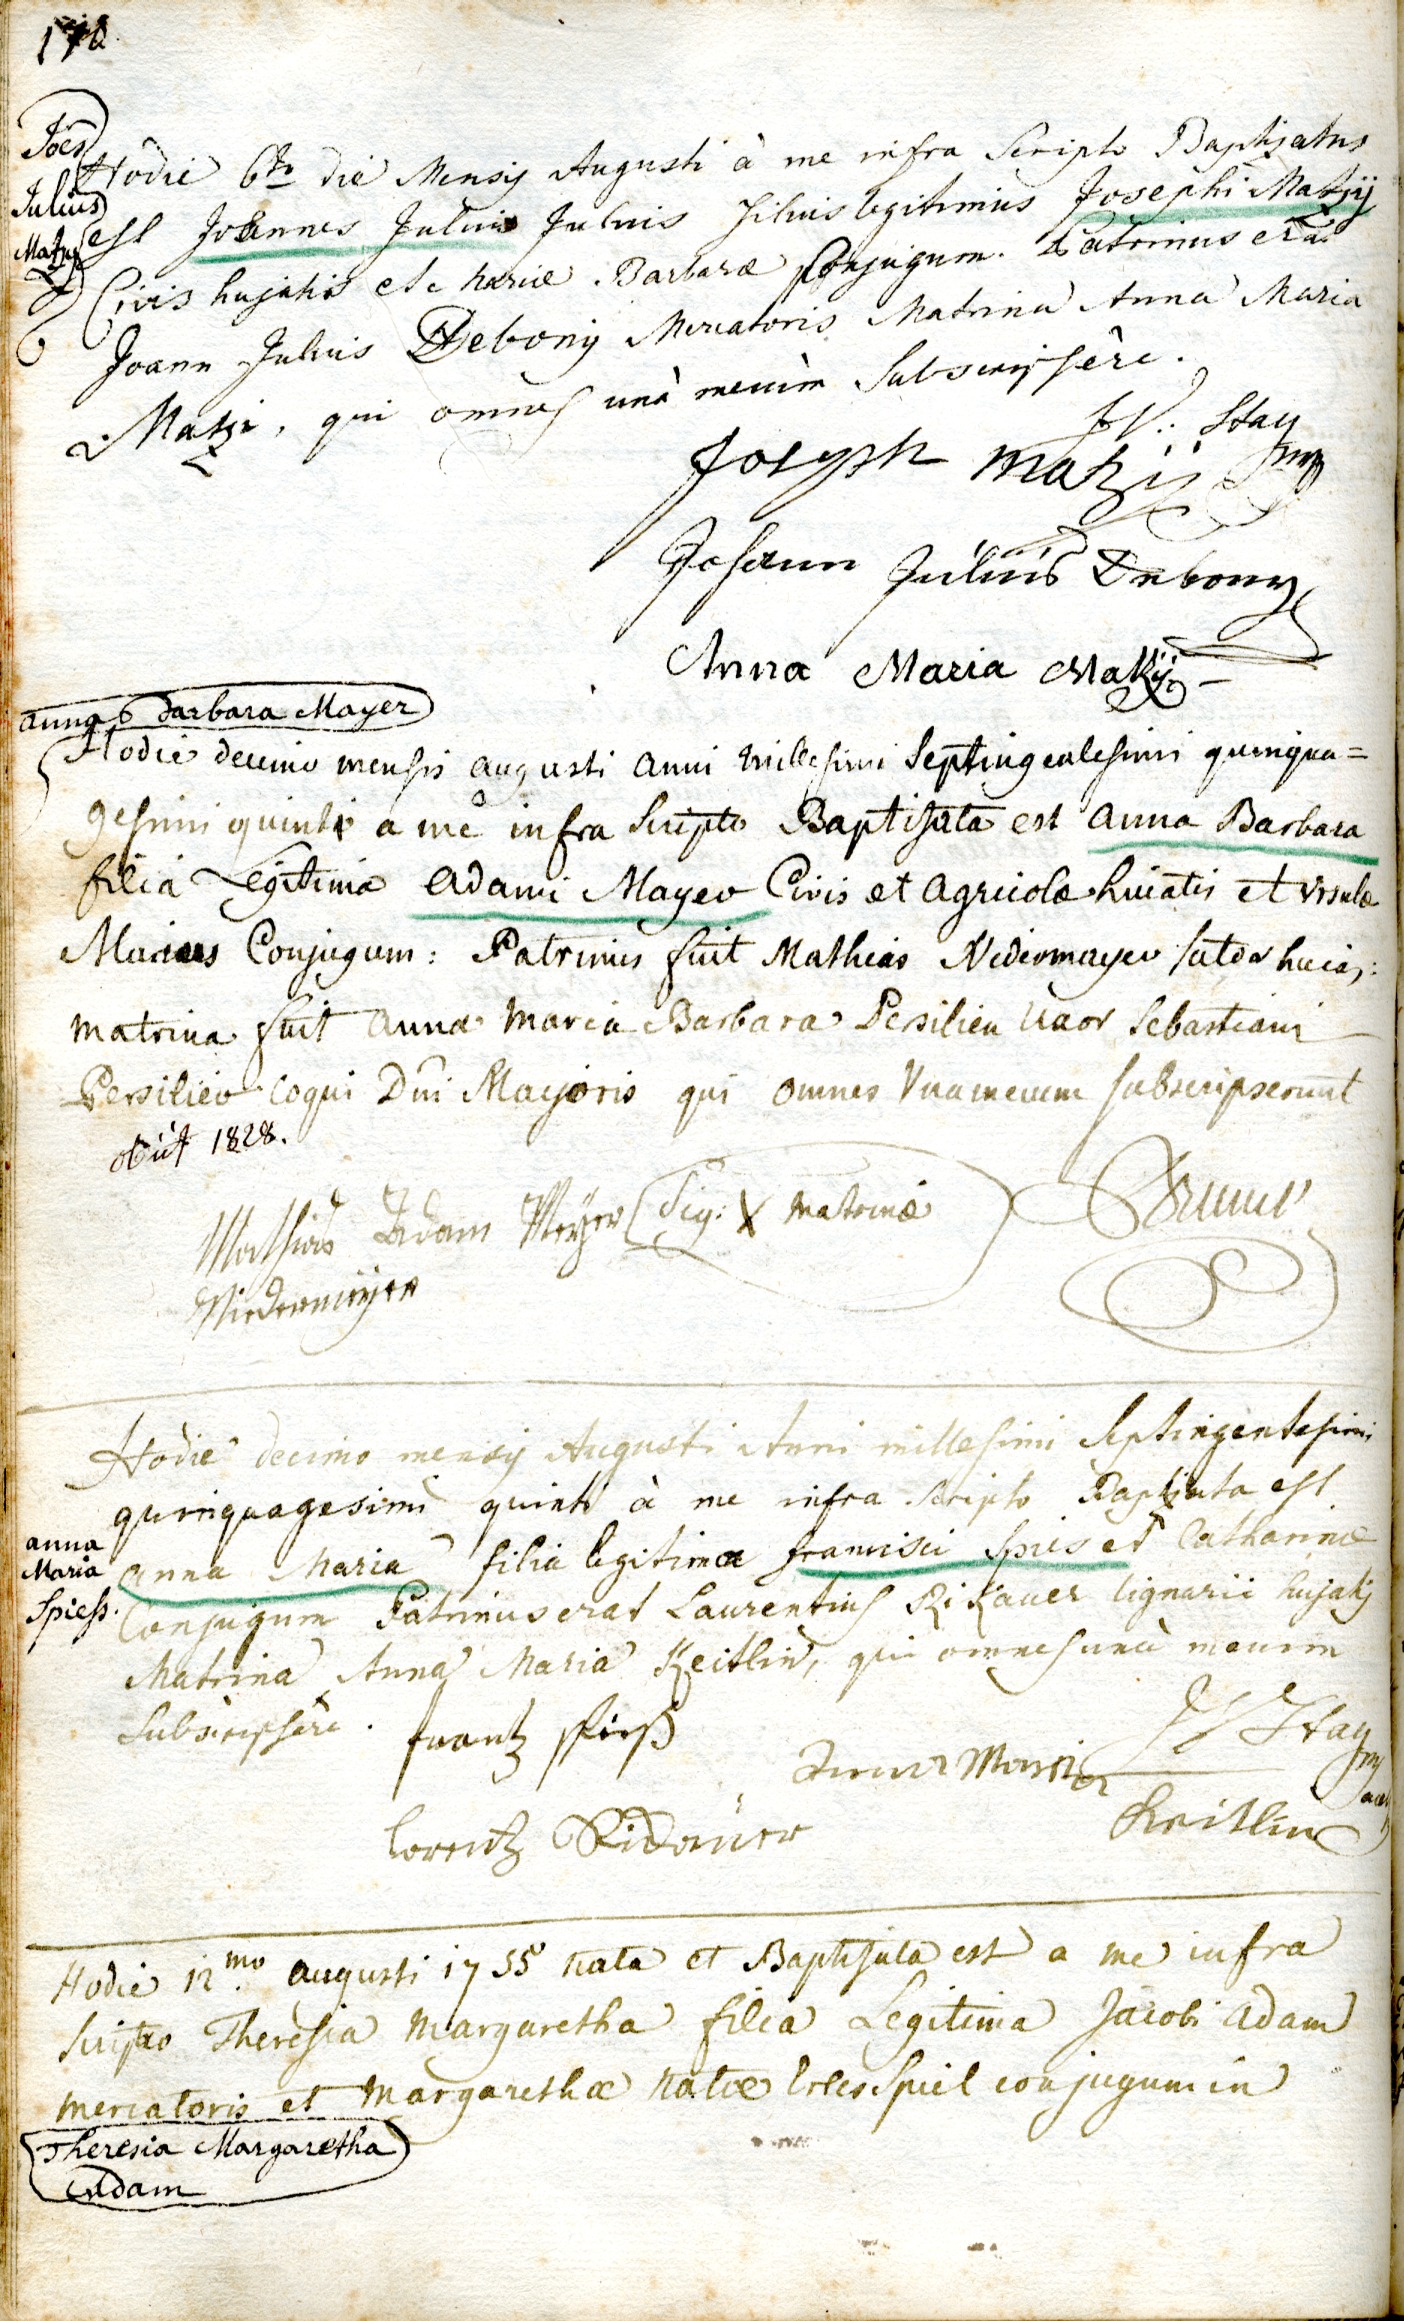 Joês
Julius
Matzy
Hodie 6to die Mensis Augusti à me infra Scripto Baptizatus
est Joannes Julius Julius Filius legitimus Josephi Matzij
Civis hujatis et Mariæ Barbaræ Conjugum. Patrinus erat
Joann Julius Debonij Mercatoris Matrina Anna Maria
Matzi, qui omnes unà mecùm Subscripsêre.
Stay
Joseph Matzij
Johann Julius Debony
Anna Maria Matzij
Anna Barbara Mayer
Hodie decimo mensis augusti anni millesimi Septingentesimi quinqua=
gesimi quinti a me infra Scripto Baptisata est Anna Barbara
filia Legitima Adami Mayer Civis et Agricolæ huiatis et Ursulæ
Conjugum: Patrinus fuit Mathias Nidermayer sutor huia:
matrina fuit Anna Maria Barbara Persilien Uxor Sebastiani
Persilier coqui Dni Majoris qui omnes Unamecum subscripserunt
obiit 1828.
Mathias Adam Meÿer Sig: X matrinæ
Niedermeÿer
Hodie decimo mensis Augusti Anni millesimi Septingentesimi
quinquagesimi quinti à me infra Scripto Baptizata est
anna
Maria
Spiess.
Anna Maria filia legitima Francisci Spies et Catharinæ
Conjugum Patrinus erat Laurentius Rikauer lignarii hujatis
Matrina Anna Maria Keitlin, qui omnes unà mecum
Subscripsêre.
Frantz Spieß
Stay
Anna Maria
Keitlin
Lorentz Ridauer
Hodie 12mo augusti 1755 nata et Baptisata est a me infra
scripto Theresia Margaretha filia Legitima Jacobi Adam
mercatoris et Margarethæ natæ conjugum in
Theresia Margaretha
Adam